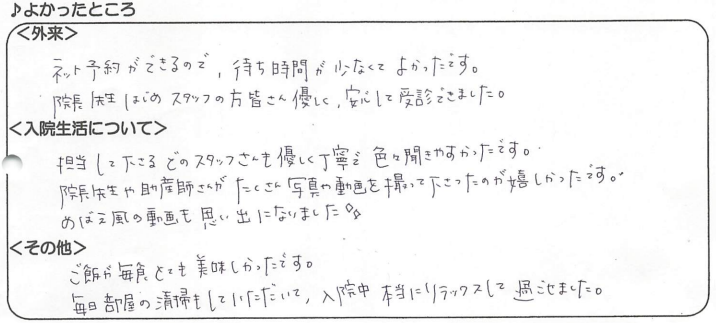 ♪よかったところ
<外来>
ネット予約ができるので、待ち時間が少なくてよかったです。
院長先生はじめスタッフの方皆さん優しく、安心して受診できました。
<入院生活について>
担当して下さるどのスタッフさんも優しく丁寧で色々聞きやすかったです。
院長先生や助産師さんがたくさん写真や動画を撮って下さったのが嬉しかったです。
めばえ風の動画も思い出になりました
<その他>
ご飯が毎食とても美味しかったです。
毎日部屋の清掃もしていただいて、入院中本当にリラックスして過ごせました。